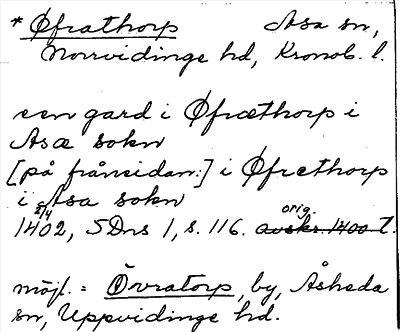 * Øfrathorp Asa sn,
Norrvidinge hd, Kronob. l.
een gard i Øfræthorp i
Asæ sokn
[på frånsidan:] i Øfrethorp
i Asa sokn
2/4 orig.
1402, SDns 1, s. 116. avskr. 1400 t.
möjl. = Övratorp, by, Åsheda
sn, Uppvidinge hd.